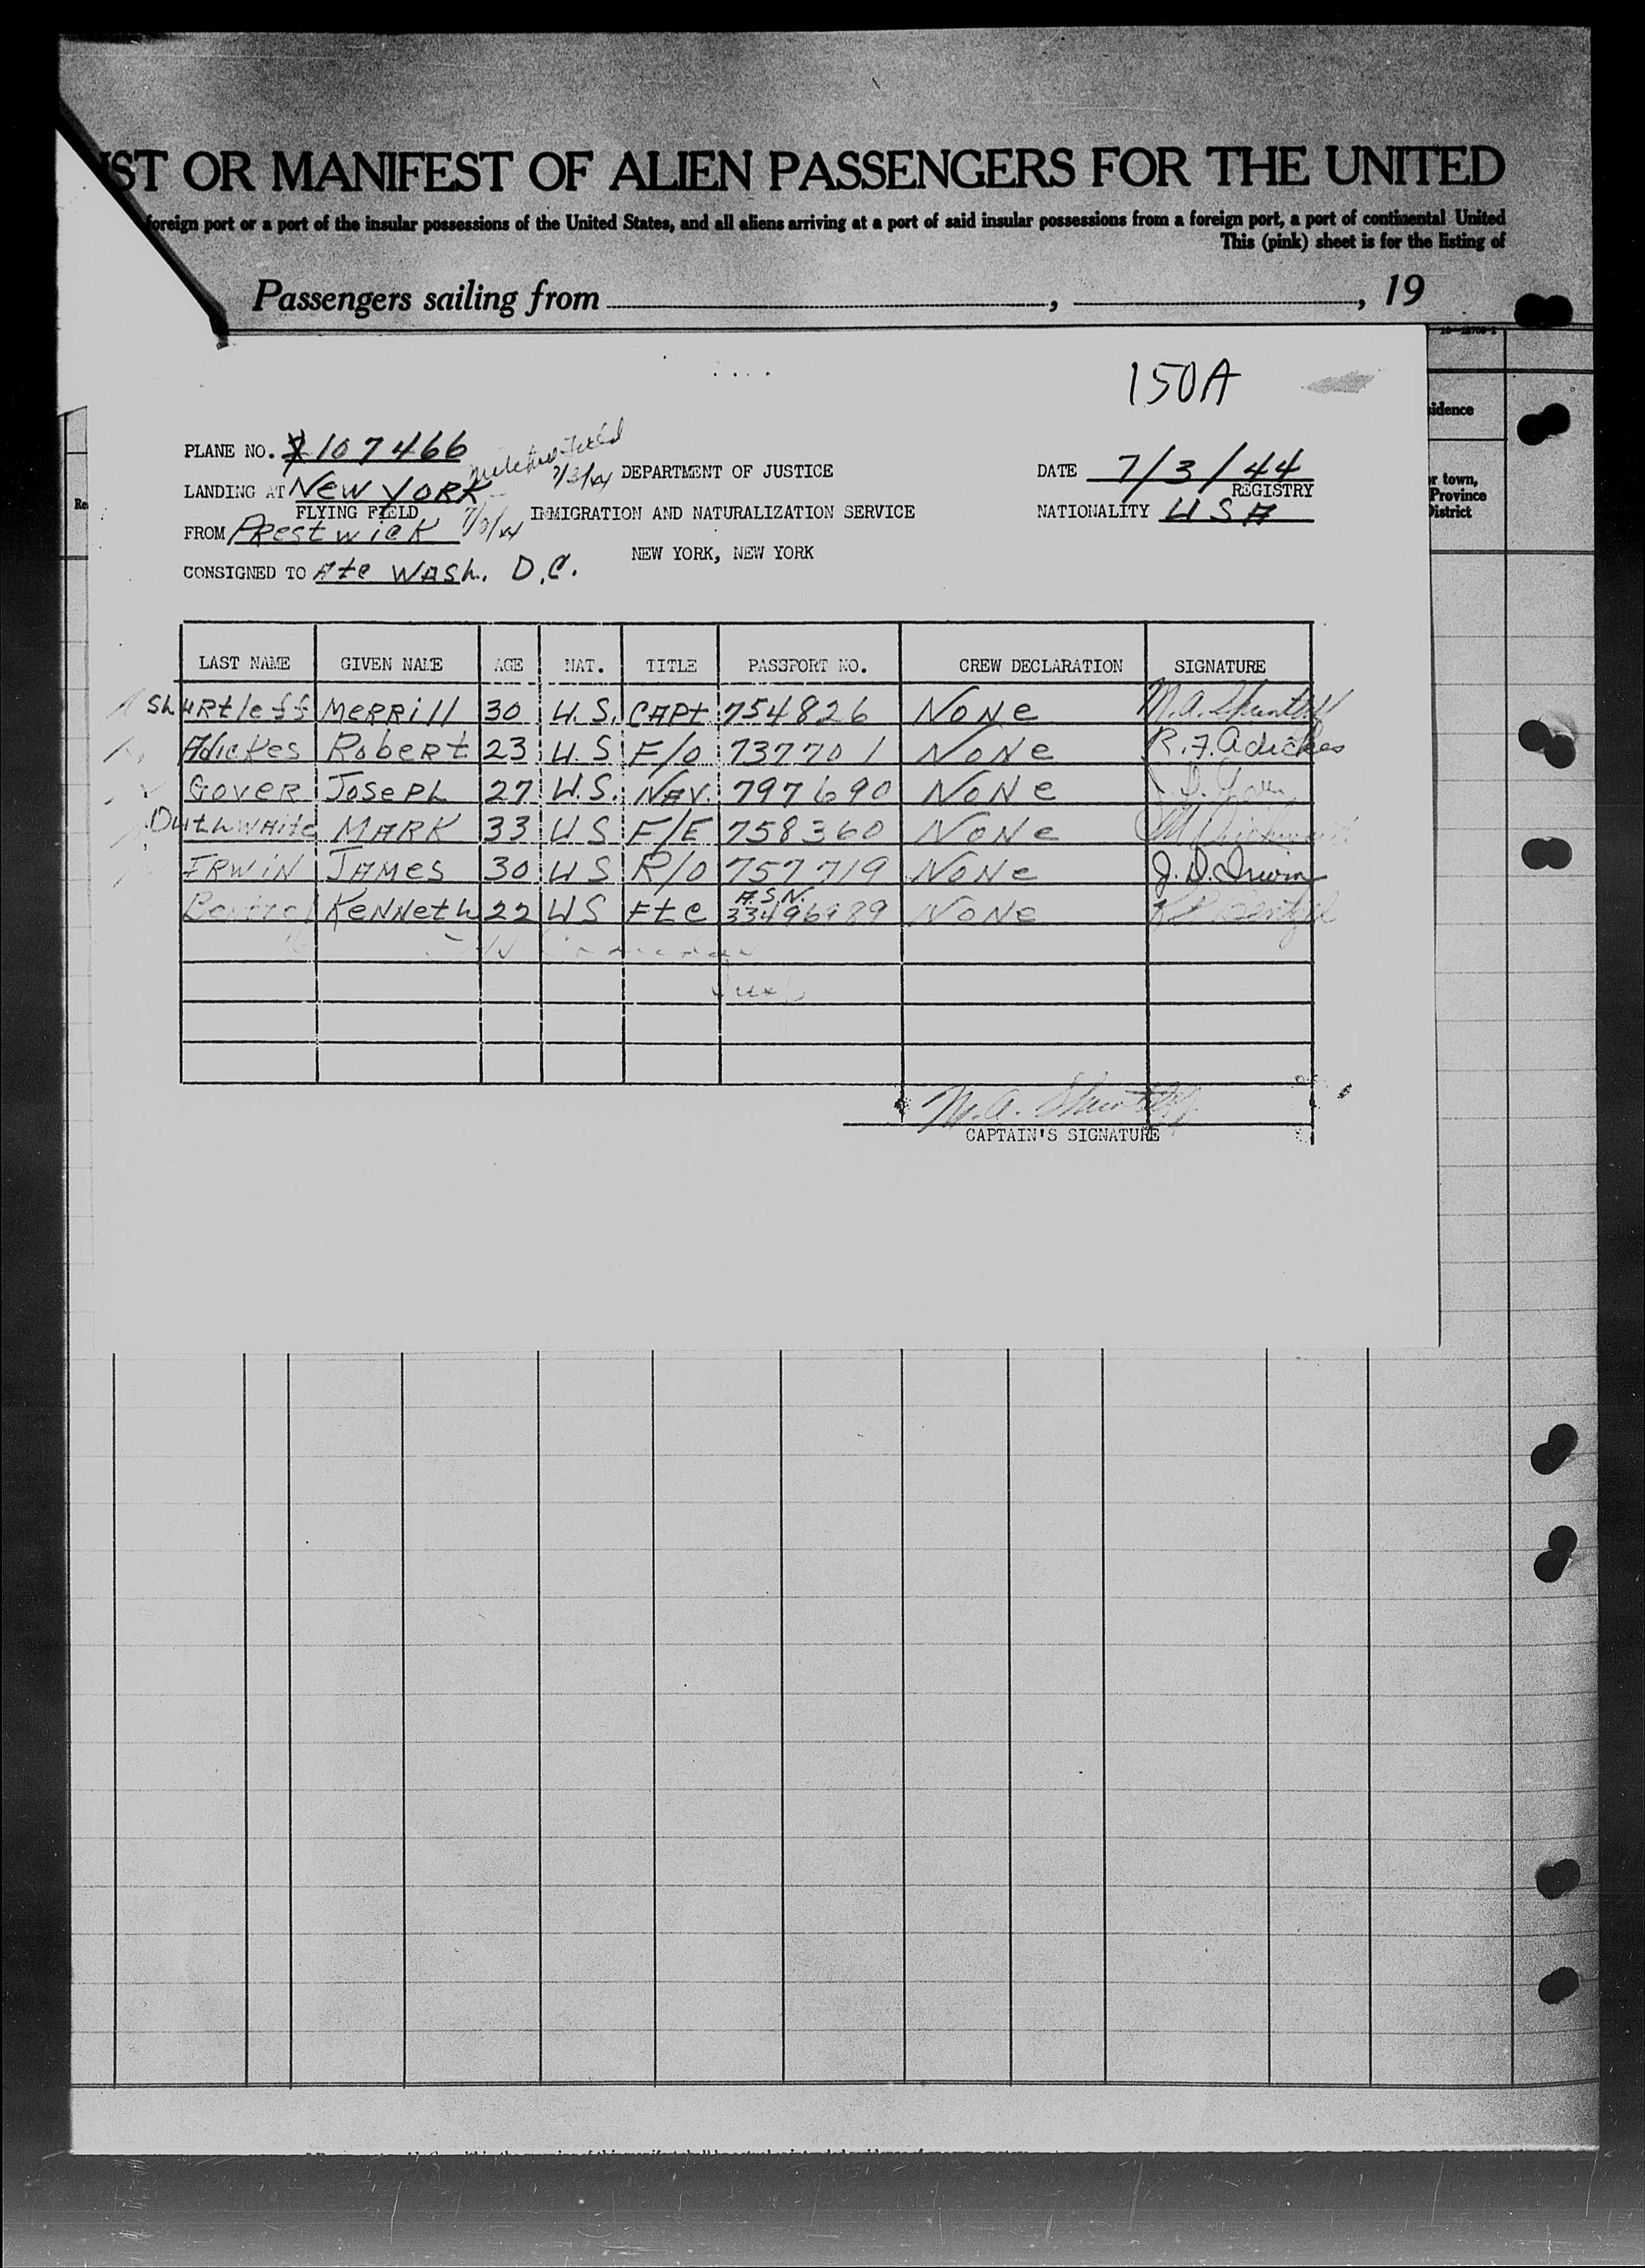 ST OR MANIFEST OF ALIEN PASSENGERS FOR THE UNITED
foreign port or a port of the insular possessions of the United States, and all aliens arriving at a port of said insular possessions from a foreign port, a port of continental United
This (pink) sheet is for the listing of
Passengers sailing from , , 19
150A
idence
r town,
Province
District
Re
PLANE NO. 107466
Mitchel Field
7/3/44
DEPARTMENT OF JUSTICE
DATE 7/3/44
LANDING AT New York
REGISTRY
FLYING FIELD
7/3/44
IMMIGRATION AND NATURALIZATION SERVICE
NATIONALITY USA
FROM Prestwick
NEW YORK, NEW YORK
CONSIGNED TO Atc WASh. D.C.
LAST NAME GIVEN NAME AGE NAT. TITLE PASSPORT NO. CREW DECLARATION SIGNATURE
Shurtleff Merrill 30 U.S. CAPt 754826 None M.A. Shurtleff
Adickes Robert 23 U.S F/O 737701 None R.F. Adickes
Gover Joseph 27 U.S. NAV. 797690 None
Outhwaite MARK 33 US F/E 758360 None
Irwin James 30 US R/O 757719 None J.D. Irwin
Kenneth 22 US Ftc A.S.N. 33496989 None
M.A. Shurtleff
CAPTAIN'S SIGNATURE